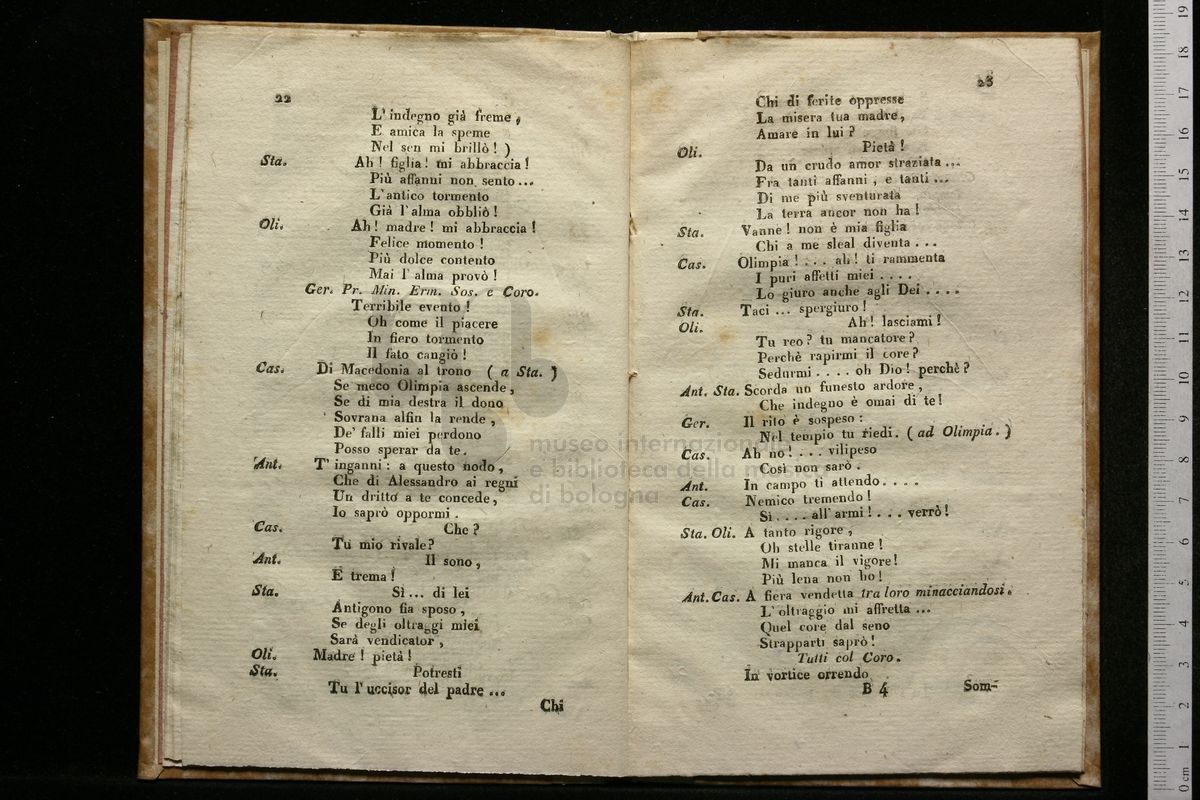 22
L' indegno già freme,
E amica la speme
Nel sen mi brillò! )
Sta. Ah! figlia! mi abbraccia!
Più affanni non sento...
L'antico tormento
Già l'alma obbliò!
Oli. Ah! madre! mi abbraccia!
Felice momento!
Più dolce contento
Mai l'alma provò!
Ger. Pr. Min. Erm. Sos. e Coro.
Terribile evento!
Oh come il piacere
In fiero tormento
Il fato cangiò!
Cas. Di Macedonia al trono ( a Sta. )
Se meco Olimpia ascende,
Se di mia destra il dono
Sovrana alfin la rende,
De' falli miei perdono
Posso sperar da te.
Ant. T' inganni: a questo nodo,
Che di Alessandro ai regni
Un dritto a te concede,
Io saprò oppormi.
Cas. Che?
Tu mio rivale?
Ant. Il sono,
E trema!
Sta. Sì... di lei
Antigono fia sposo,
Se degli oltraggi miei
Sarà vendicator,
Oli. Madre! pietà!
Sta. Potresti
Tu l'uccisor del padre...
Chi
23
Chi di ferite oppresse
La misera tua madre,
Amare in lui?
Oli. Pietà!
Da un crudo amor straziata...
Fra tanti affanni, e tanti...
Di me più sventurata
La terra ancor non ha!
Sta. Vanne! non è mia figlia
Chi a me sleal diventa...
Cas. Olimpia!... ah! ti rammenta
I puri affetti miei....
Lo giuro anche agli Dei....
Sta. Taci... spergiuro!
Oli. Ah! lasciami!
Tu reo? tu mancatore?
Perchè rapirmi il core?
Sedurmi.... oh Dio! perchè?
Ant. Sta. Scorda un funesto ardore,
Che indegno è omai di te!
Ger. Il rito è sospeso:
Nel tempio tu riedi. ( ad Olimpia. )
Cas. Ah no!... vilipeso
Così non sarò.
Ant. In campo ti attendo....
Cas. Nemico tremendo!
Sì.... all' armi!... verrò!
Sta. Oli. A tanto rigore,
Oh stelle tiranne!
Mi manca il vigore!
Più lena non ho!
Ant. Cas. A fiera vendetta tra loro minacciandosi.
L' oltraggio mi affretta...
Quel core dal seno
Strapparti saprò!
Tutti col Coro.
In vortice orrendo
B 4 Som-
museo internazionale
e biblioteca della musica
di bologna
19
18
17
16
15
14
13
12
11
10
9
8
7
6
5
4
3
2
1
0 cm